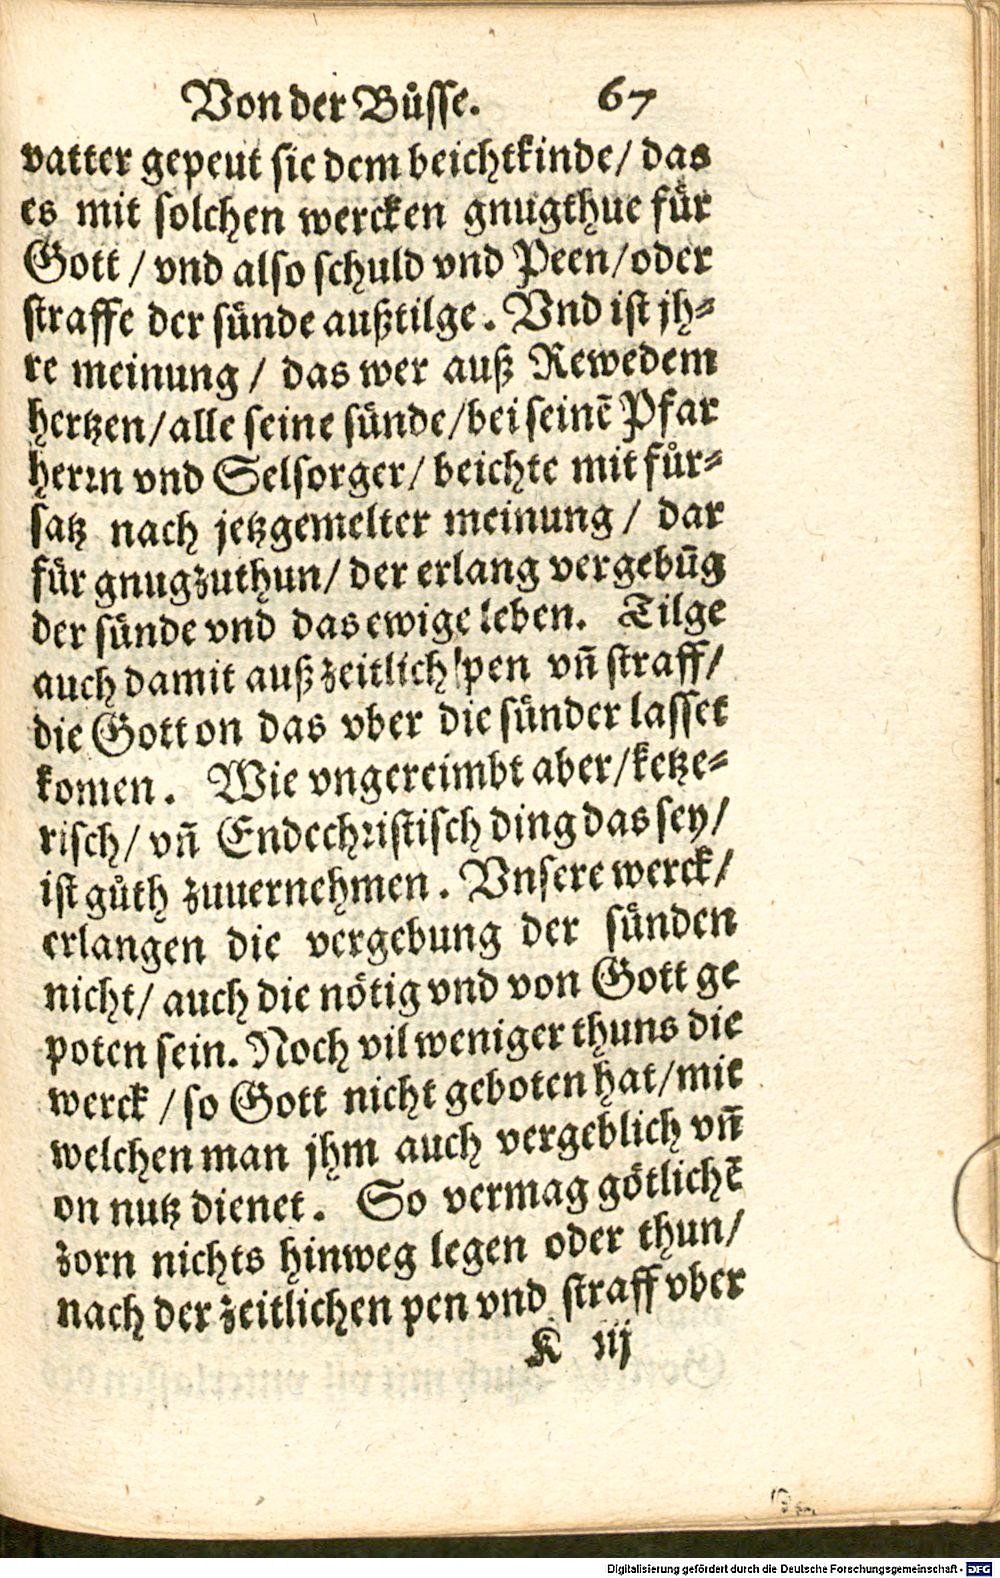 Von der Bůsse. 67
vatter gepeut sie dem beichtkinde/ das
es mit solchen wercken gnugthue für
Gott / vnd also schuld vnd Peen/oder
straffe der sünde außtilge. Vnd ist jh⸗
re meinung / das wer auß Rewedem
hertzen/alle seine sünde/bei seinē Pfar
herrn vnd Selsorger/ beichte mit für⸗
satz nach jetzgemelter meinung / dar
für gnugzuthun/ der erlang vergebūg
der sünde vnd das ewige leben. Tilge
auch damit auß zeitlich pen vn̄ straff/
die Gott on das vber die sünder lasset
komen. Wie vngereimbt aber/ketze⸗
risch/ vn̄ Endechristisch ding das sey/
ist gůth zuuernehmen. Vnsere werck/
erlangen die vergebung der sünden
nicht/ auch die nötig vnd von Gott ge
poten sein. Noch vil weniger thuns die
werck /so Gott nicht geboten hat/mit
welchen man jhm auch vergeblich vn̄
on nutz dienet. So vermag götlichē
zorn nichts hinweg legen oder thun/
nach der zeitlichen pen vnd straff vber
K iij
Digitalisierung gefördert durch die Deutsche Forschungsgemeinschaft - DFG